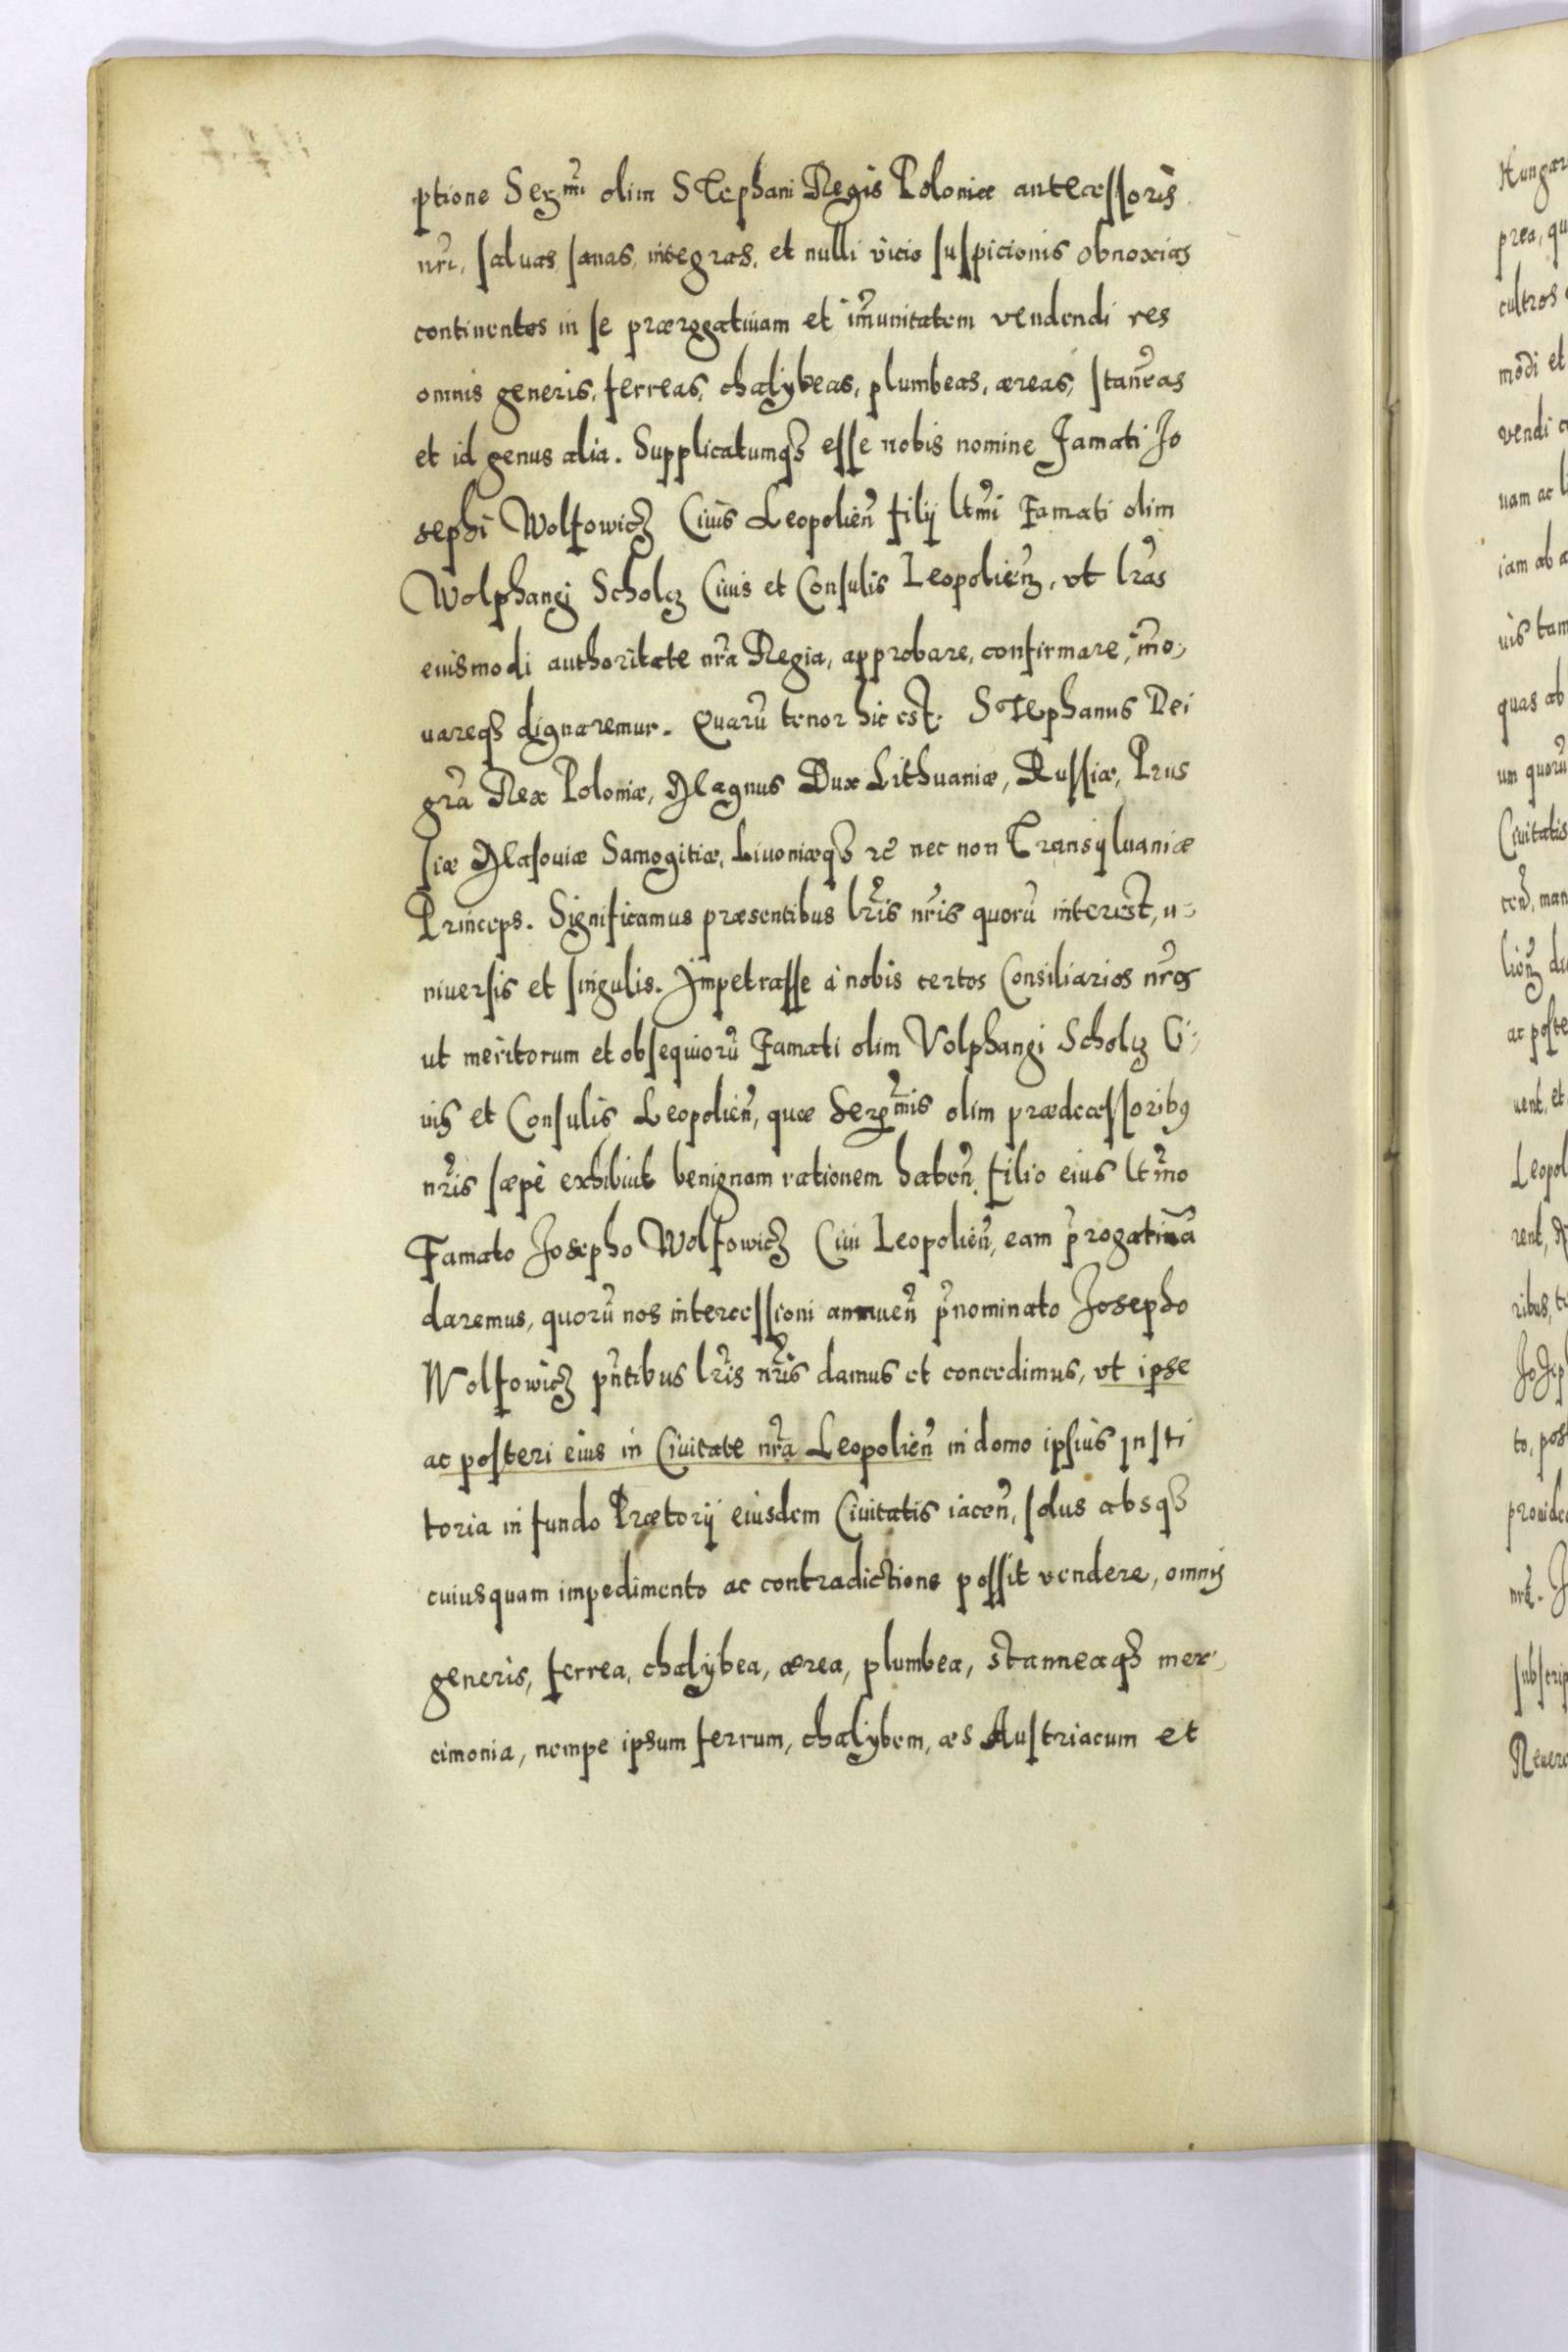 ptione Sermi olim Stephani Regis Poloniæ antecessoris
nr̃i, saluas sanas, integras, et nulli vicio suspicionis obnoxias
continentes in se prærogatiuam et im̃unitatem vendendi res
omnis generis, ferreas, chalybeas, plumbeas, æreas, stañeas
et id genus alia. Supplicatumqȝ esse nobis nomine Famati Jo
sephi Wolfowicz Ciuis Leopolien̄ filij ltm̃i Famati olim
Wolphangi Scholcz Ciuis et Consulis Leopolien̄, vt lr̃as
eiusmodi authoritate nr̃a Regia, approbare, confirmare, in̄o-
uareqȝ dignaremur. Quarũ tenor hic est. Stephanus Dei
gr̃a Rex Poloniæ, Magnus Dux Lithuaniæ, Russiæ, Prus
siæ Masouiæ Samogitiæ, Liuoniæqȝ rē nec non Transyluaniæ
Princeps. Significamus præsentibus lr̃is nr̃is quorũ interest, u-
niuersis et singulis. Impetrasse à nobis certos Consiliarios nr̃os
ut meritorum et obsequiorũ Famati olim Volphangi Scholcz Ci-
uis et Consulis Leopolien̄, quæ Serm̃is olim prædecessoribꝯ
nr̃is sæpè exhibiuit benignam rationem haben̄, filio eius ltm̃o
Famato Josepho Wolfowicz Ciui Leopolien̄, eam p̃rogatiuã
daremus, quorũ nos intercessioni annuen̄ p̃nominato Josepho
Wolfowicz pñtibus lr̃is nr̃is damus et concedimus, vt ipse
ac posteri eius in Ciuitate nr̃a Leopolien̄ in domo ipsius insti
toria in fundo Prætorij eiusdem Ciuitatis iacen̄, solus absqȝ
cuiusquam impedimento ac contradictione possit vendere, omnis
generis, ferrea, chalybea, ærea, plumbea, stanneaqȝ mer-
cimonia, nempe ipsum ferrum, chalybem, æs Austriacum et
Hungar
prea, qu
cultros
mõdi et
vendi
uam ac
iam ab a
uis tam
quas ab
um quorũ
Ciuitatis
man
ac poste
uent, et
Leopol
rent,
ribus,
Josep
to, pos
prouide
subscrip
Reuere